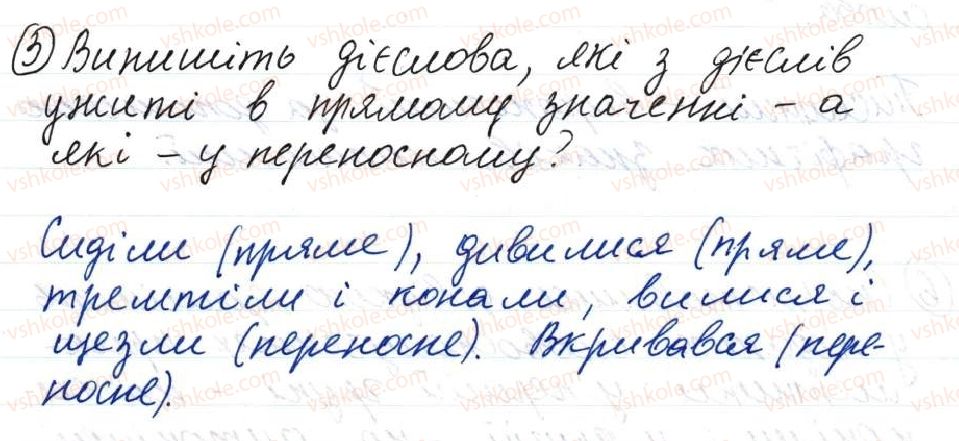 ③ Випишіть дієслова, які з дієслів
ужиті в прямому значенні - а
які - у переносному?
Сиділи (пряме), дивилися (пряме),
тремтіли і конали, вилися і
щезли (переносне). Вкривався (пере-
носне).